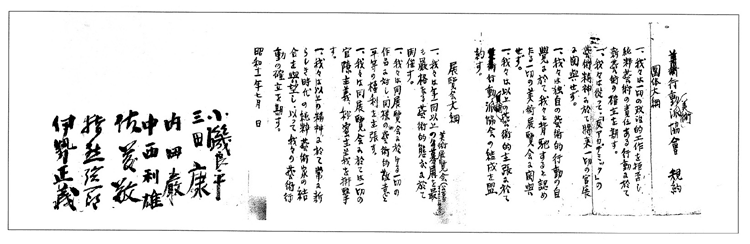 藝術行動派協會 規約
団体大綱
一、我々は一切の政治的工作を拒否し
純粋藝術の責任ある行動に於て
新芸術の確立を期す。
一、我々は従って「反アカデミック」の
藝術精神に於て將来一切の官展
に関与せず。
一、我々は独自の藝術的行動の自
覚に於て我々と背馳すると認め
る一切の美術展覧会に関与
せず。
一、我々は以上の藝術的主張に於て
藝術行動派協会の結成を盟
約す。
展覧会大綱
美術展覧会
一、我々は年一回以上の
も厳格なる藝術的態度に於て
開催す。
一、我々は同展覧会に於ける一切の
作品に対し、同様の藝術的敬意と
平等の権利を主張す。
一、我々は同展覧会に於て一切の
官僚主義、秘密主義を排撃
す。
一、我々は以上の精神に於て常に新
らしき時代の純粋藝術家の結
合を熱望し、以て我々の藝術行
動の確立を期す。
昭和十一年七月 日
小磯良平
三田康
内田巖
中西利雄
佐藤敬
猪熊弦一郎
伊勢正義